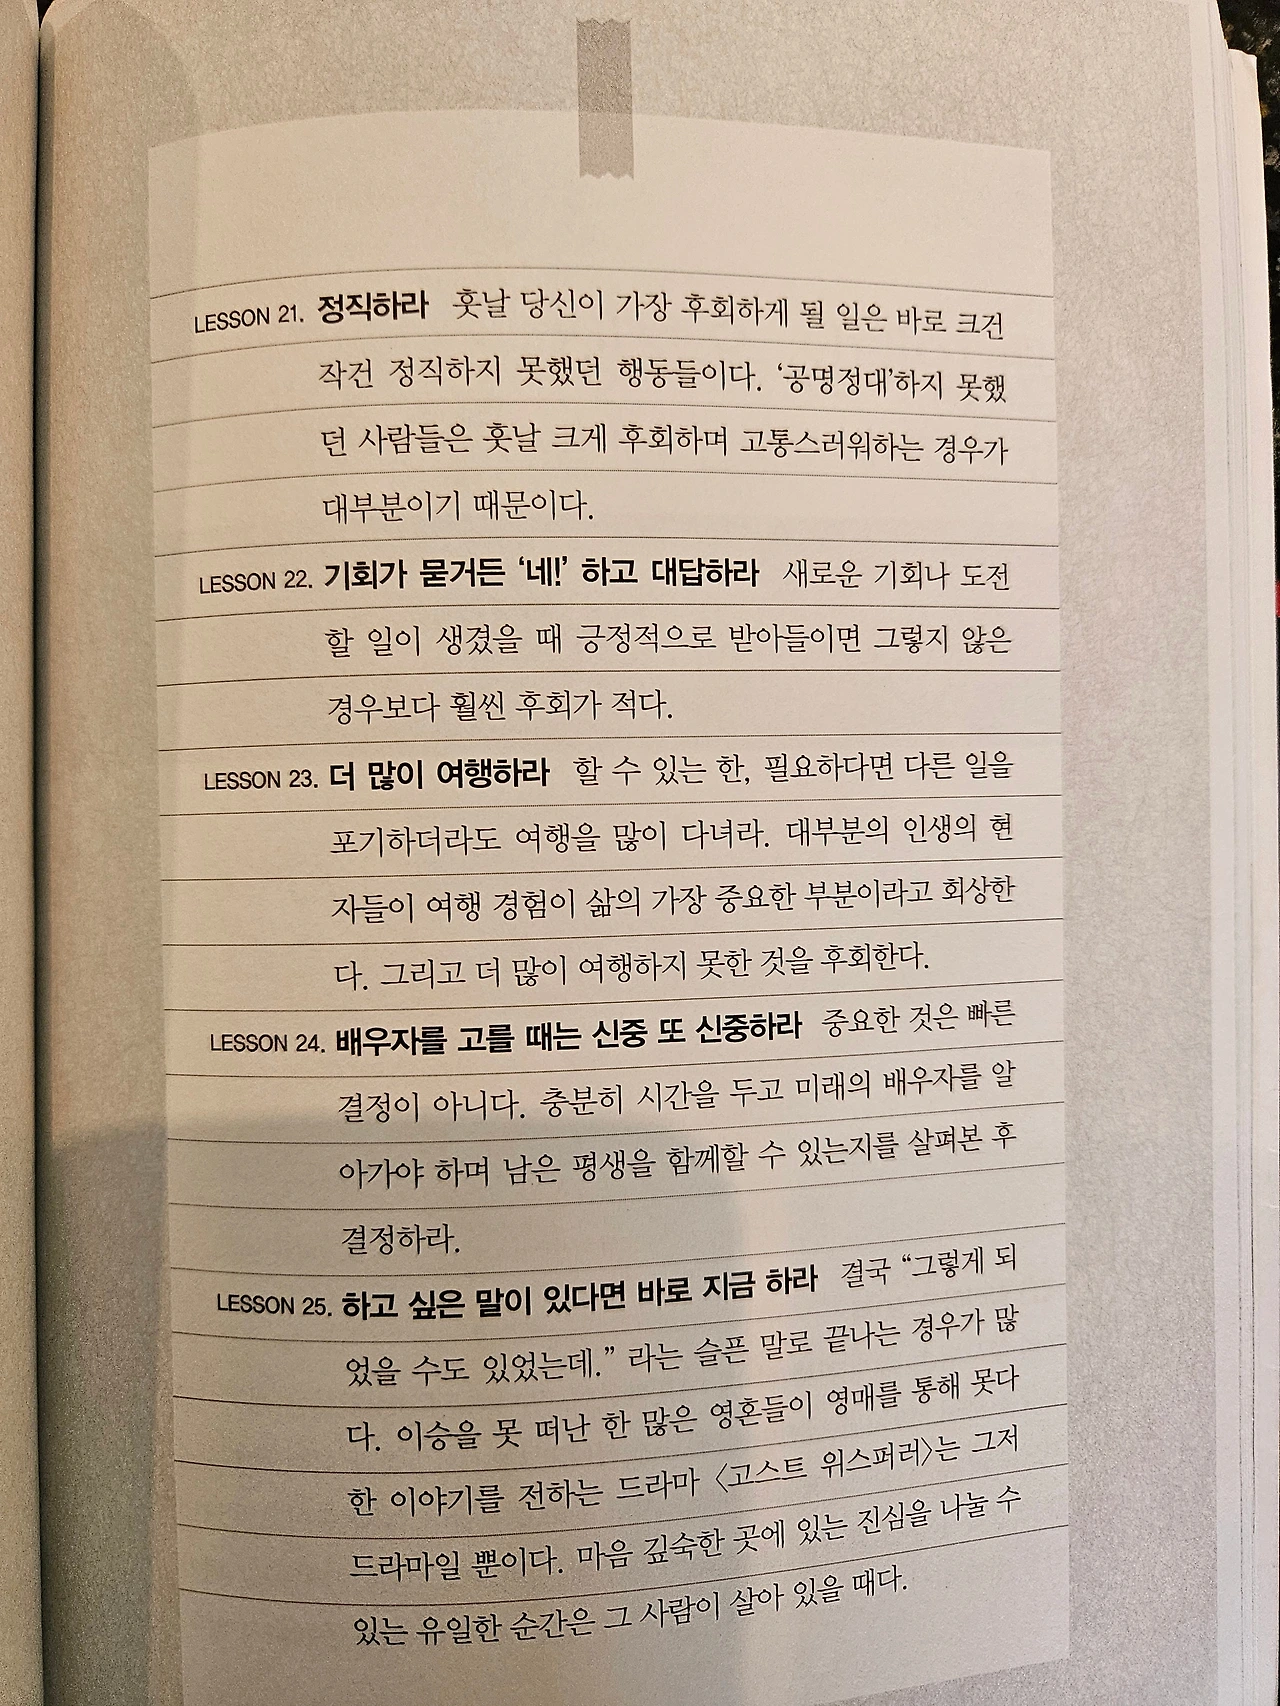 LESSON 21. 정직하라 훗날 당신이 가장 후회하게 될 일은 바로 크건
작건 정직하지 못했던 행동들이다. ‘공명정대’하지 못했
던 사람들은 훗날 크게 후회하며 고통스러워하는 경우가
대부분이기 때문이다.
LESSON 22. 기회가 묻거든 ‘네!’ 하고 대답하라 새로운 기회나 도전
할 일이 생겼을 때 긍정적으로 받아들이면 그렇지 않은
경우보다 훨씬 후회가 적다.
LESSON 23. 더 많이 여행하라 할 수 있는 한, 필요하다면 다른 일을
포기하더라도 여행을 많이 다녀라. 대부분의 인생의 현
자들이 여행 경험이 삶의 가장 중요한 부분이라고 회상한
다. 그리고 더 많이 여행하지 못한 것을 후회한다.
LESSON 24. 배우자를 고를 때는 신중 또 신중하라 중요한 것은 빠른
결정이 아니다. 충분히 시간을 두고 미래의 배우자를 알
아가야 하며 남은 평생을 함께할 수 있는지를 살펴본 후
결정하라.
LESSON 25. 하고 싶은 말이 있다면 바로 지금 하라 결국 “그렇게 되
었을 수도 있었는데.” 라는 슬픈 말로 끝나는 경우가 많
다. 이승을 못 떠난 한 많은 영혼들이 영매를 통해 못다
한 이야기를 전하는 드라마 〈고스트 위스퍼러〉는 그저
드라마일 뿐이다. 마음 깊숙한 곳에 있는 진심을 나눌 수
있는 유일한 순간은 그 사람이 살아 있을 때다.